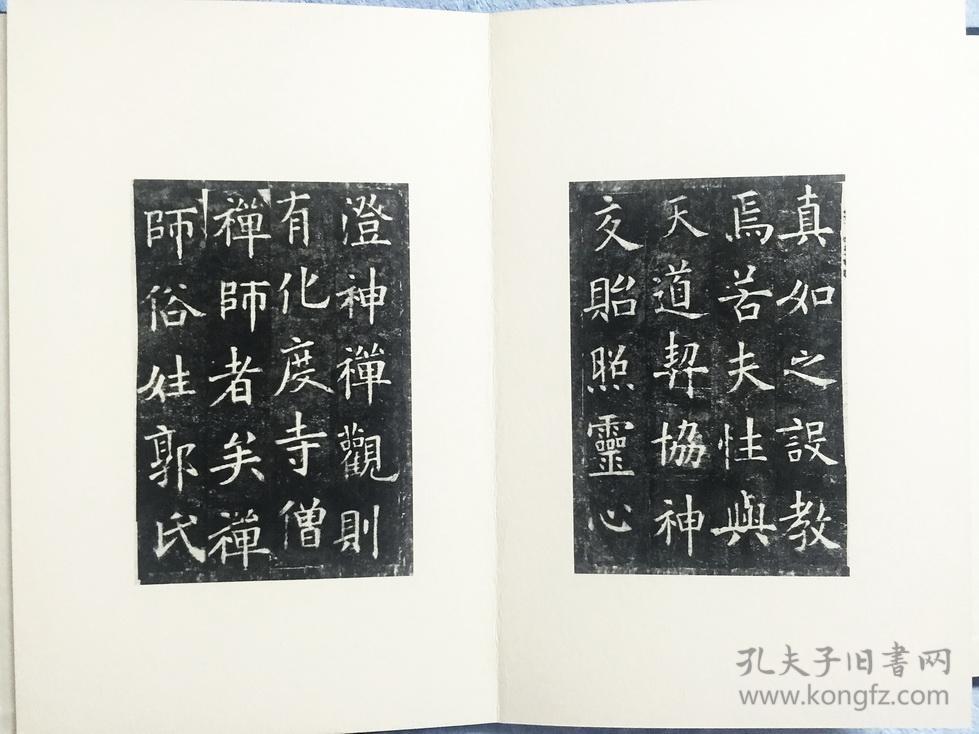 真如之設教
焉若夫性與
天道契協神
交貽照靈心
澄神禪觀則
有化度寺僧
禪師者矣禪
師俗姓郭氏
孔夫子旧書网
www.kongfz.com